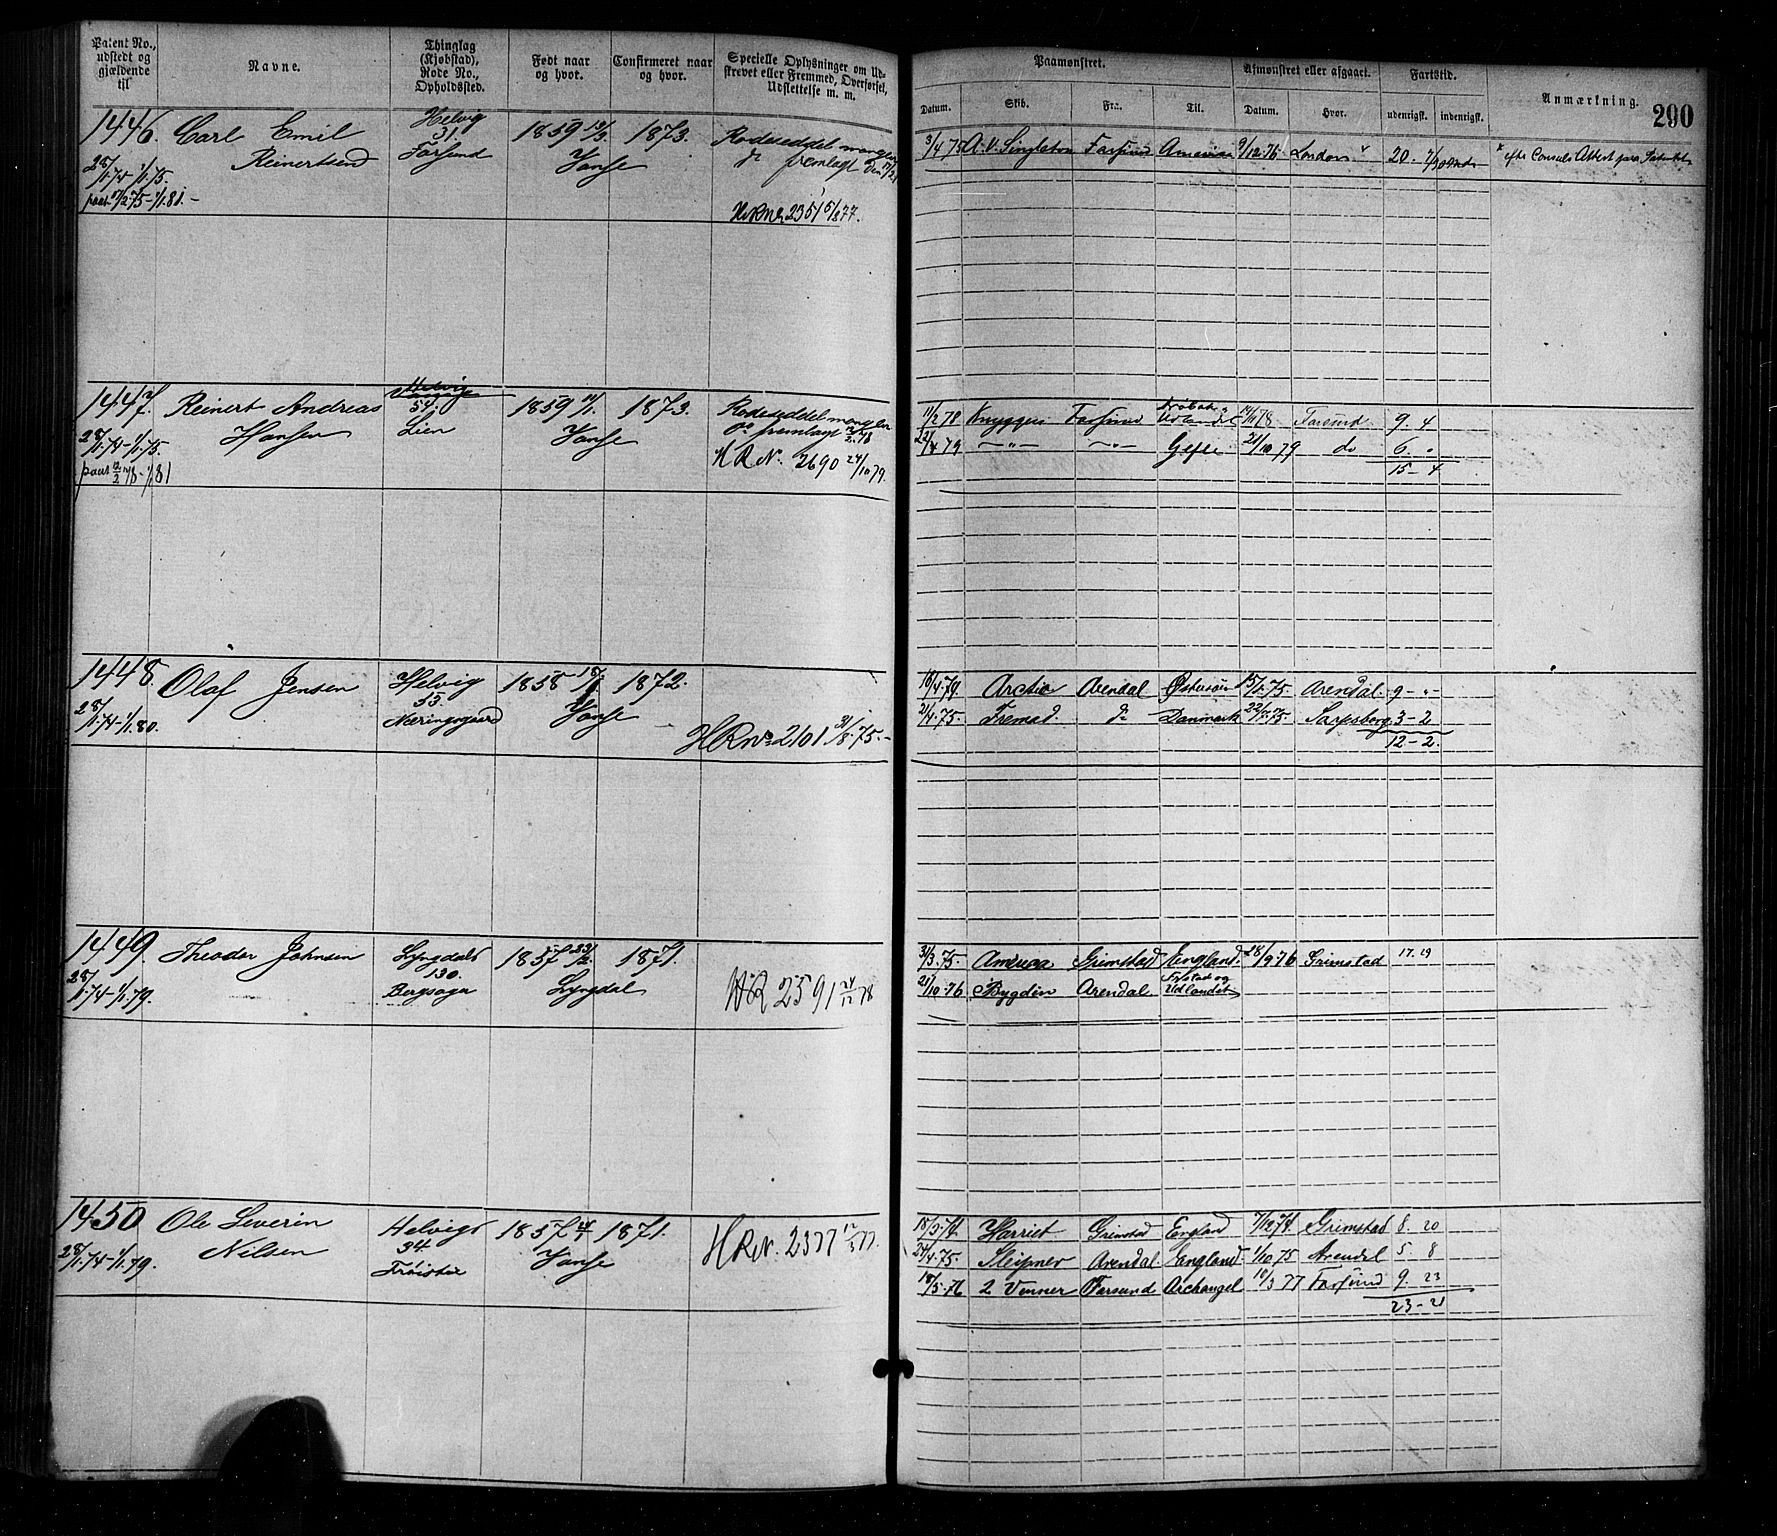 Patent No., udstedt og gjældende til
Navne.
Thinglag (Kjøbstad), Rode No., Opholdssted.
Født naar og hvor.
Confirmeret naar og hvor.
Specielle Oplysninger om Udskrevet eller Fremmed, Overførsel, Udslettelse m. m.
Paamønstret.
Afmønstret eller afgaaet.
Fartstid.
Anmærkning.
290
Datum. Skib. Fra. Til. Datum. Hvor. udenrigsk. indenrigsk.
1446. Carl Emil Helvig 1859 13/9 1873. Rodeseddel mangler
Reinertsen 31. Vanse do fremlagt
28/1.74-1/1.75. Farsund
paat. 17/2.75-1/1.81.-
HRNo 2351 5/2 77.
3/4 75 A. V. Singleton Farsund Amerika 9/12.76 London 20.
1447. Reinert Andreas Helvig 1859 11/1. 1873. Rodeseddel mangler
Hansen 54. Vanse do fremlagt 12/2.78
28/1.74-1/1.75. Lien
paat 12/2 78-1/1.81
HRN. 2690 24/10 79.
11/2 78 Knyggen Farsund Udlandet 14/11 78 Farsund 9. 4
22/4 79 —"— —"— Gefle 21/10 79 do 6. "
15-4
1448. Olaf Jensen Helvig 1858 18/1 1872.
28/1.74-1/1.80. 53. Vanse
Næringsgaard
HRNo 2101 31/8.75.-
18/4.74. Arctic Arendal Østersøen 15/1.75. Arendal 9-"-
21/4.75. Fremad. do Danmark 22/7.75. Sarpsborg 3-2
12-2.
1449. Theodor Johnsen Lyngdals 1857 23/12. 1871.
28/1.74-1/1.79. 130. Lyngdal
Bergsager
HR 2591 24/12 78
31/3.75. America Grimstad England. 28/9 76 Grimstad 17. 19
21/10.76 Bygdin Arendal Udlandet
1450 Ole Severin Helvigs 1857 4/4 1871.
Nilsen 34 Vanse
28/1.74-1/1.79. Frøistie
HRN. 2377 12/3 77.
18/3.74. Harriet Grimstad England 7/12.74. Grimstad 8. 20
24/4.75. Sleipner Arendal England 1/10.75 Arendal 5. 8
18/5.76 2 Venner Farsund Archangel 10/3 77 Farsund 9. 23
23-21